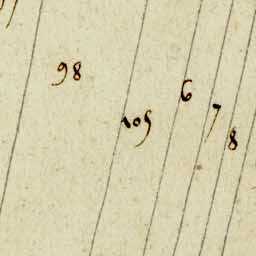 98
105
6
7
8